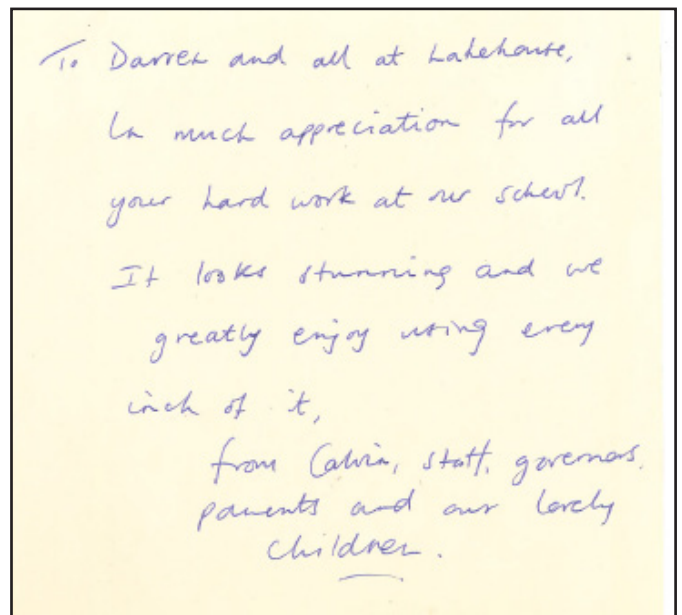 To Darren and all at Lakehouse,
In much appreciation for all
your hard work at our school.
It looks stunning and we
greatly enjoy using every
inch of it,
from Calvin, staff, governors,
parents and our lovely
children.